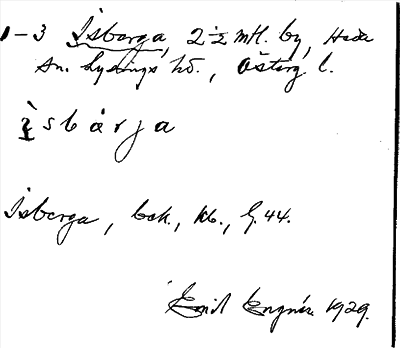 1-3 Isberga, 2 ½ mtl. by, Heda
sn. Lysings hd., Österg. l.
ìsbárja
Isberga, bok., kb., G. 44.
Emil Engnér 1929.